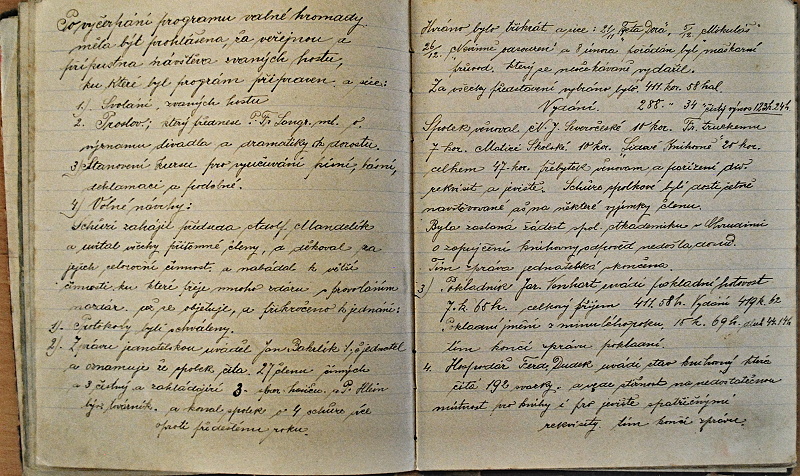 Po vyčerpání programu valné hromady
měla být prohlášena, za veřejnou a
přípustna návštěva zvaných hostu,
ku které byl program připraven a sice:
1.) Svolání, zvaných hostu
2. Proslov; který přednese P. Fr. Langr. ml. o
významu divadla a dramatiky do dorostu.
3) Stanovení kursu pro vyučování písní, básní,
deklamaci a podobně.
4) Volné návrhy:
Schůzi zahájil předseda Adolf Mandelík
a uvítal všechy přítomné členy, a děkoval za
jejich celoroční činnost, a nabádal k větší
činnosti ku které přeje mnoho zdaru s provoláním
nazdar. a přikročeno k jednání:
1). Protokoly byli schváleny.
2). Zprávu jenatelskou uváděl Jan jednatel
a oznamuje že spolek čítá. 27 členu činných
a 3 čestný a zakládající 3. sbor hasiču. a P. Klein
továrník. a konal spolek o 4 schůze více
proti předešlému roku.
Hráno bylo třikrát a sice: 21/11 "Teta Dora", 5/12 Mikuláš"
26/12. "Nevinně a 8 února pořádán byl maškarní
průvod. který se neočekávaně vydařil.
Za všecky představení vybráno bylo. 411 kor. 58 hal.
Vydání. 288. " 34 " čistý výnos 123 h. 24 h.
Spolek věnoval čN. J. Severočeské 10 kor. Fr.
7 kor. Matici Školské 10 kor. "Lidové Knihovně" 20 kor.
celkem 47. kor. přebytek věnovam a pořízení div.
rekvisit a jeviště. Schůze spolkové byli dosti četně
navštěvované až na některé vyjímky členu.
Byla zaslaná žádost spol. akademiku v Chrudimi
o zapujčení knihovny odpověd nedošla dosud.
Tím zpráva jednatelská skončena.
3) Pokladník Jar. uvádí pokladní hotovost
7. k. 65 h. celkový příjem 411. 58 h. Vydání 419 k. 62
Pokladní jmění z minulého roku, 15 k. 69 h.
tím končí zprávu pokladní.
4. Hospodář Ferd. Dusek uvádí stav knihovny která
čítá 192 svazky. a vede stížnost na nedostatečnou
místnost pro knihy i pro jeviště s patřičnými
rekvisity tím končí zprávu.